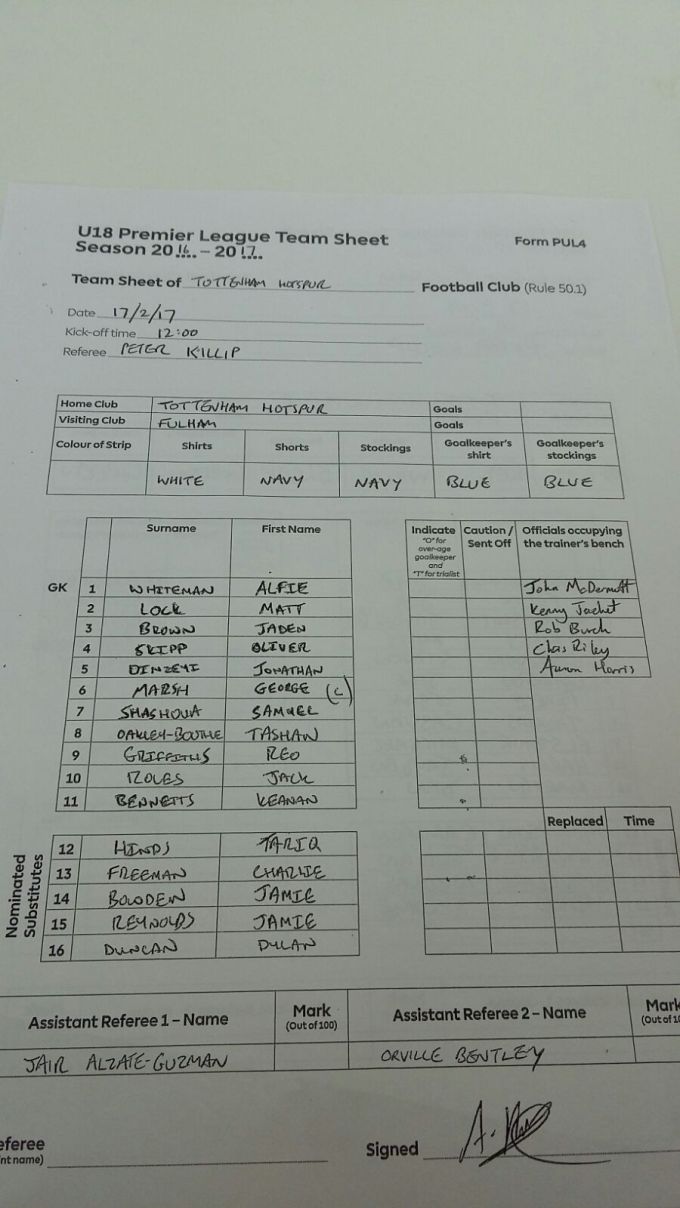 U18 Premier League Team Sheet
Season 2016 - 2017
Form PUL4
Team Sheet of TOTTENHAM HOTSPUR Football Club (Rule 50.1)
Date 17/2/17
Kick-off time 12:00
Referee PETER KILLIP
Home Club TOTTENHAM HOTSPUR Goals
Visiting Club FULHAM Goals
Colour of Strip Shirts Shorts Stockings Goalkeeper's shirt Goalkeeper's stockings
WHITE NAVY NAVY BLUE BLUE
Surname First Name Indicate "O" for over-age goalkeeper and "T" for trialist Caution / Sent Off Officials occupying the trainer's bench
GK 1 WHITEMAN ALFIE John McDermott
2 LOCK MATT Kenny Jacket
3 BROWN JADEN Rob Burch
4 SKIPP OLIVER Chas Riley
5 DINZEYI JONATHAN Aaron Harris
6 MARSH GEORGE (C)
7 SHASHOUA SAMUEL
8 OAKLEY-BOOTHE TASHAN
9 GRIFFITHS REO
10 ROLES JACK
11 BENNETTS KEANAN
Replaced Time
Nominated Substitutes
12 HINDS TARIQ
13 FREEMAN CHARLIE
14 BOWDEN JAMIE
15 REYNOLDS JAMIE
16 DUNCAN DYLAN
Assistant Referee 1 – Name Mark (Out of 100) Assistant Referee 2 – Name Mark
JAIR ALZATE-GUZMAN ORVILLE BENTLEY
eferee
nt name)
Signed